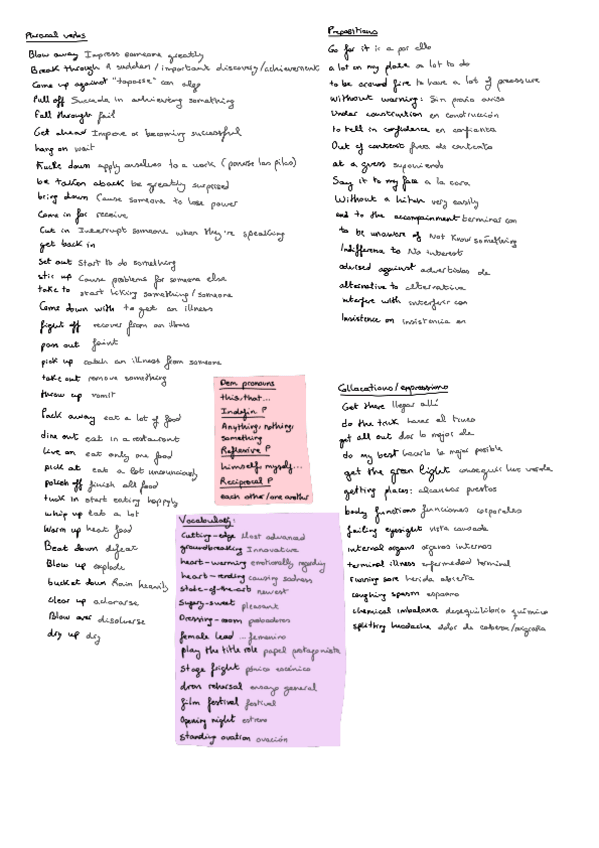 Phrasal verbs
Blow away Impress someone greatly
Break through A sudden / important discovery/achievement
Come up against "toparse" con algo
Pull off Succeda in achieving something
Fall through fail
Get ahead Improve or becoming successful
hang on wait
Buckle down apply ourselves to a work (ponerse las pilas)
be taken aback be greatly surprised
bring down Cause someone to lose power
Come in for receive
Cut in Interrupt someone when they're speaking
get back in
Set out Start to do something
stir up Cause problems for someone else
take to start liking something/someone
Come down with to get an illness
fight off recover from an illness
pass out faint
pick up catch an illness from someone
take out remove something
throw up vomit
Pack away eat a lot of food
dine out eat in a restaurant
live on eat only one food
pick at eat a lot
polish off finish all food
tuck in start eating happily
whip up eat a lot
Warm up heat food
Beat down defeat
Blow up explode
bucket down Rain heavily
clear up aclararse
Blow over disolverse
dry up dry
Prepositions
Go for it ir a por ello
a lot on my plate a lot to do
to be around fire to have a lot of pressure
Without warning: Sin previo aviso
Under construction en construcción
to tell in confidence en confianza
Out of context fuera de contexto
at a guess suponiendo
Say it to my face a la cara
Without a hitch very easily
end to the accompainment terminar con
to be unaware of Not Know something
Indifference to No interest
advised against
alternative to alternativa
interfere with interferir con
Insistence on insistencia en
Dem pronouns
this, that...
Indefin P
Anything, nothing,
something
Reflexive P
himself, myself...
Reciprocal P
each other/one another
Vocabulary:
Cutting-edge Most advanced
groundbreaking Innovative
heart-warming emotionally
heart-rending causing sadness
state-of-the-art newest
Sugary-sweet pleasant
Dressing-room probadores
female lead ... femenino
play the title role papel protagonista
Stage fright pánico escénico
dress rehersal ensayo general
film festival festival
Opening night estreno
Standing ovation ovación
Collocations/expressions
Get there llegar allí
do the trick hacer el truco
get all out dar lo mejor de
do my best hacerlo lo mejor posible
get the green light conseguir luz verde
getting places: alcanzar puestos
body functions funciones corporales
failing eyesight vista cansada
internal organs órganos internos
terminal illness enfermedad terminal
running sore herida abierta
coughing spasm espasmo
chemical imbalance desequilibrio químico
splitting headache dolor de cabeza/migraña